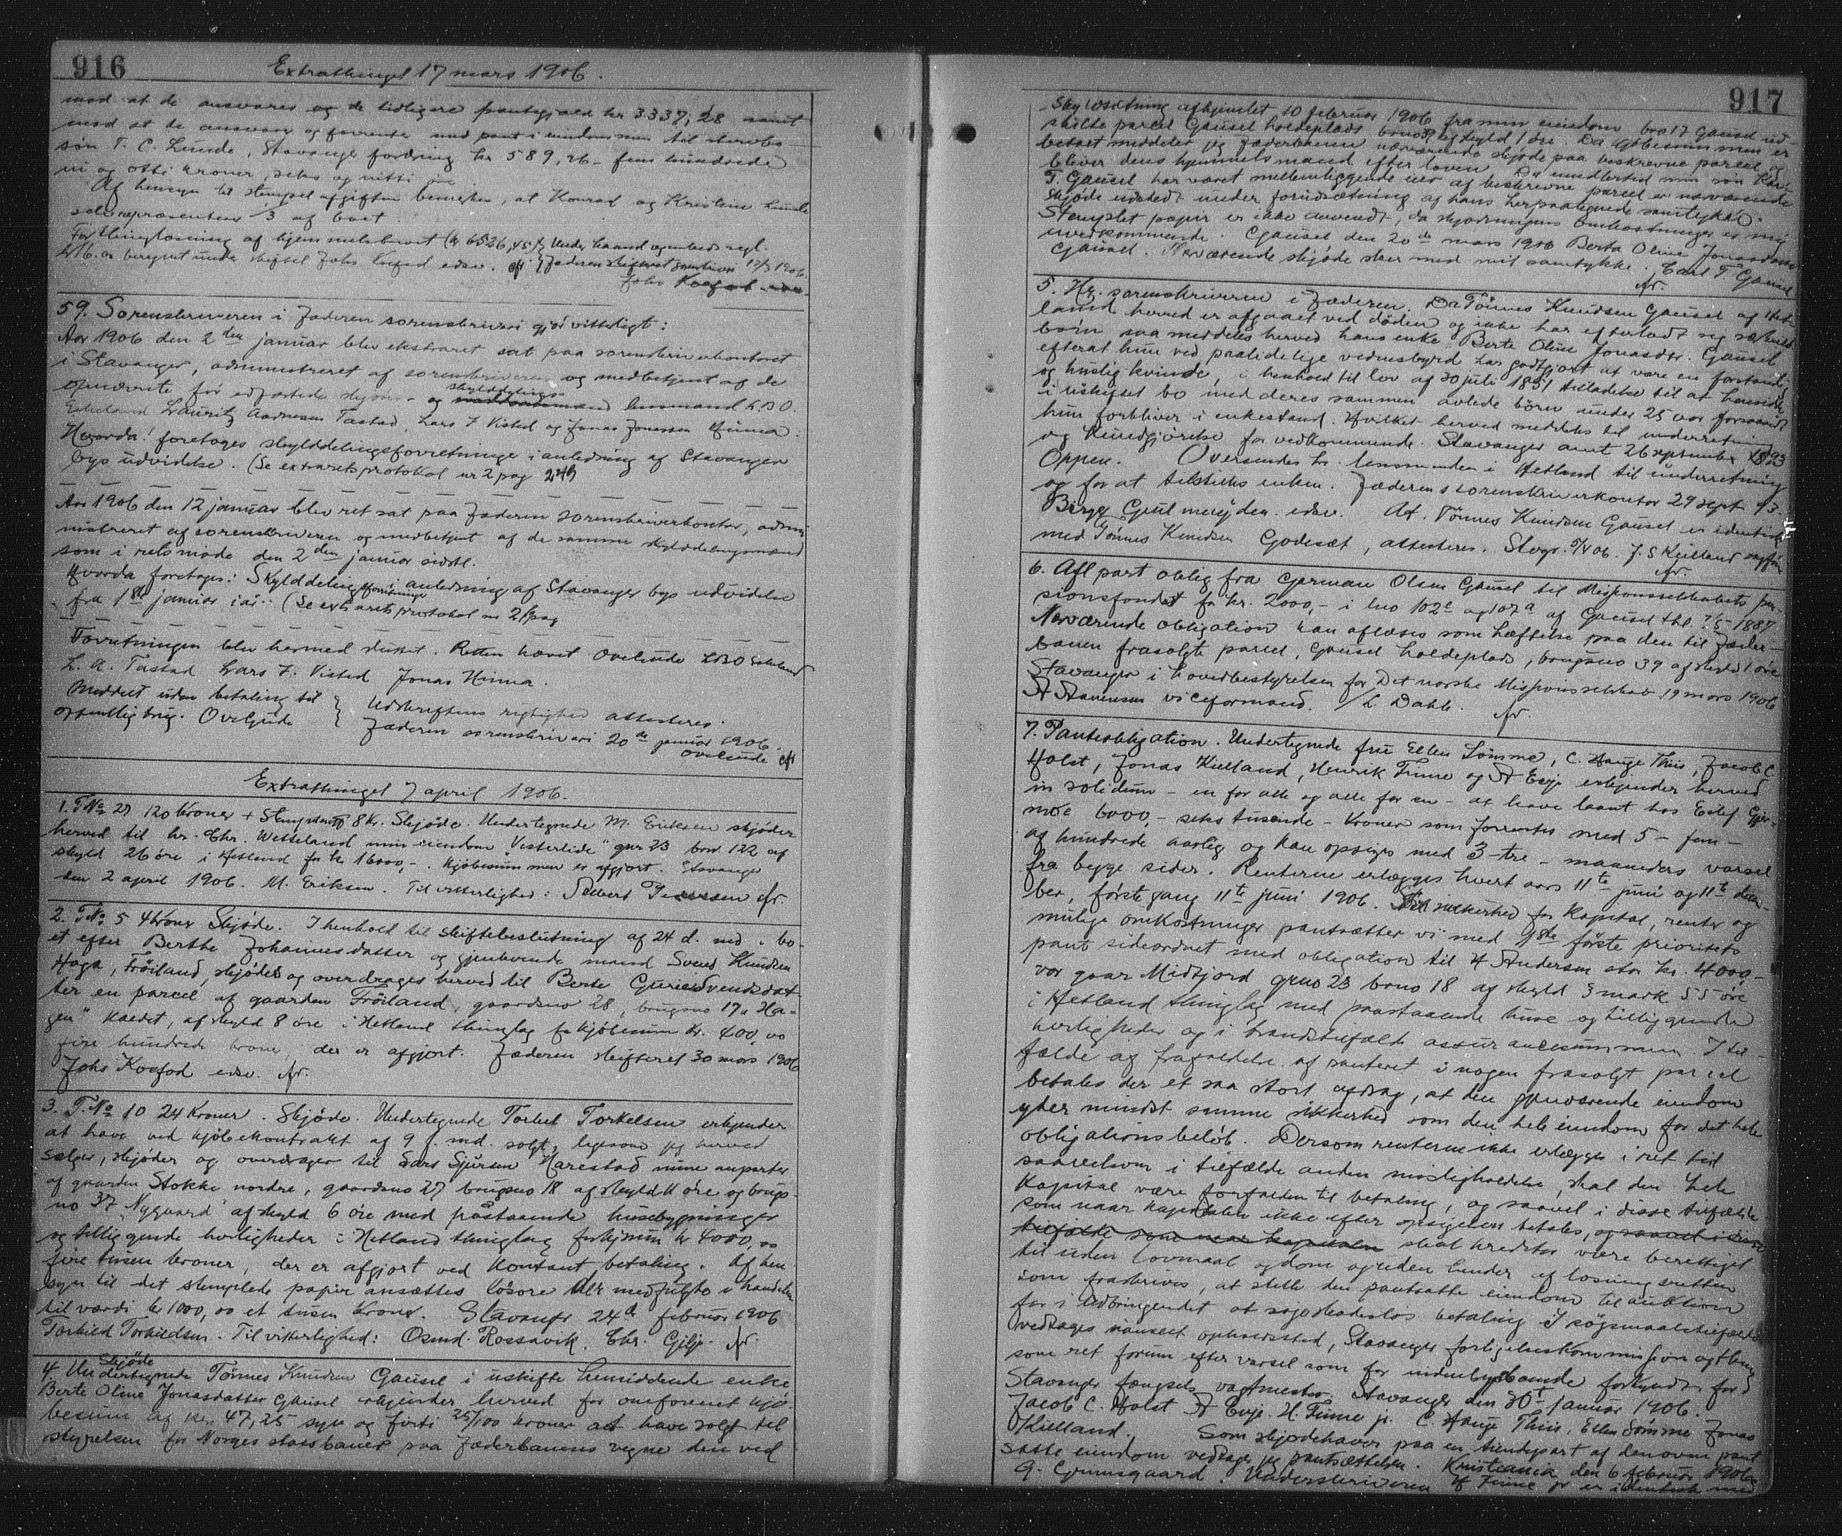 916
Extrathinget 17 mars 1906.
mod at de ansvarer og de tidligere pantegjæld kr 3337,28 samt
mod at de ansvarer og forrente med pant i eiendommen til sterbo
søn T. C. Lunde, Stavanger fordring kr 589,96 - fem hundrede
ni og otti kroner, seks og nitti øre
Af hensyn til stempelafgiften bemerkes, at Konrad og Kristine Lunde
selv repræsenterer 1/3 af boet.
For thinglæsning af hjemmelsbrevet Under haand og embeds segl.
kr 16.00 beregnet under skiftet Johs Koefod edsv. Jæderen skifteret 17/3 1906
Johs Koefod edsv.
59. Sorenskriveren i Jæderen sorenskriveri gjør vitterligt:
Aar 1906 den 2den januar blev ekstraret sat paa sorenskriverkontoret
i Stavanger, administreret af sorenskriveren og medbetjent af de
opnævnte før edfæstede skjøns- og skylddelingsmænd lensmand L.B.O.
Eskeland Lauritz Aadnesen Tastad, Lars F. Visted og Jonas Jonassen Hinna.
Hvorda: foretoges skylddelingsforretninge i anledning af Stavanger
bys udvidelse. (Se extraretsprotokol nr 2 pag 249
Aar 1906 den 12 januar blev ret sat paa Jæderen sorenskriverkontor, admi
nistreret af sorenskriveren og medbetjent af de samme skylddelingsmænd
som i retsmøde den 2den januar sidstl.
Hvorda foretoges: Skylddelingsforretninger i anledning af Stavanger bys udvidelse
fra 1ste januar iaar. (Se extraretsprotokol nr 2 pag
Forretningen blev hermed sluttet. Retten hævet Ove Gude LBO Eskeland
L. A. Tastad Lars F. Visted Jonas Hinna.
Meddelt uden betaling til Udskriftens rigtighed attesteres.
offentlig brug. Ove Gude Jæderen sorenskriveri 20de januar 1906.
Ove Gude
Extrathinget 7 april 1906.
1. TNo 27 120 kroner + Stempelmrk 8 kr. Skjøde. Undertegnede M. Eriksen skjøder
herved til hr. Chr. Wetteland min eiendom "Vesterlide" gnr 23 bno 122 af
skyld 26 øre i Hetland for kr 16000,-. Kjøbesummen er afgjort. Stavanger
den 2 april 1906. M. Eriksen. Til vitterlighed: Sivert Pedersen Ar.
2. TNo 5 4 kroner Skjøde. I henhold til skiftebeslutning af 24 d. md i bo-
et efter Berthe Johannesdatter og gjenlevende mand Svend Knudsen
Haga, Frøiland, skjødes og overdrages herved til Berte Gurie Svendsdat-
ter en parcel af gaarden Frøiland, gaardsno 28, brugsno 17 "Ha-
gen" kaldet, af skyld 8 øre i Hetland thinglag for kjøbesum kr. 400,00
fire hundrede kroner, der er afgjort. Jæderen skifteret 30 mars 1906
Johs Koefod edsv. Ar.
3. T.No 10 24 kroner. Skjøde. Undertegnede Torkel Torkelsen erkjender
at have ved kjøbekontrakt af 9 f. md. solgt, ligesom jeg herved
sælger, skjøder og overdrager til Lars Sjursen Harestad mine anparter
af gaarden Stokke nordre, gaardsno 27 brugsno 18 af skyld 11 øre og brugs-
no 37 "Nygaard" af skyld 6 øre med påstaaende husebygninger
og tilliggende herligheder i Hetland thinglag for kjøbesum kr 4000,00
fire tusen kroner, der er afgjort ved kontant betaling. Af hen-
syn til det stemplede papir ansættes løsøre der medfulgte i handelen
til værdi kr 1000,00 et tusen kroner. Stavanger 24d februar 1906
Torkild Torkildsen. Til vitterlighed: Osmd. Rossavik. Chr. Gilje. Ar.
Skjøde
4. Undertegnede Tønnes Knudsen Gausel i uskifte hensiddende enke
Berte Oline Jonasdatter Gausel erkjender herved for omforenet kjø-
besum af kr. 47,25 syv og førti 25/100 kroner at have solgt til
styrelsen for Norges statsbaner paa Jæderbanens vegne den ved
917
skyldsætning afhjemlet 10 februar 1906 fra min eiendom bno 17 Gausel ud-
skilte parcel Gausel holdeplads bno 39 af skyld 1 øre. Da kjøbesummen er
betalt meddeler jeg Jæderbanen nærværende skjøde paa beskrevne parcel og
bliver dens hjemmelsmand efter loven. Da imidlertid min søn Karl
T. Gausel har været mellemliggende eier af beskrevne parcel er nærværende
skjøde udstedt under forudsætning af hans herpaategnede samtykke.
Stemplet papir er ikke anvendt, da skjødningens omkostninger er mig
uvedkommende. Gausel den 20de mars 1906 Berta Oline Jonasdatter
Gausel. Nærværende skjøde sker med mit samtykke. Carl T. Gausel
Ar.
5. Hr. sorenskriveren i Jæderen. Da Tønnes Knudsen Gausel af Het-
land herved er afgaaet ved døden og ikke har efterladt sig særkuld
børn saa meddeles herved hans enke Berte Oline Jonasdtr. Gausel
efterat hun ved paalidelige vidnesbyrd har godtgjort at være en forstandig
og huslig kvinde, i henhold til lov af 30 juli 1851 tilladelse til at hensidde
i uskiftet bo med deres sammen avlede børn under 25 aar forsaavidt
hun forbliver i enkestand. Hvilket herved meddeles til underretning
og kundgjørelse for vedkommende. Stavanger amt 26 september 1893
Oppen. Oversendes hr. lensmanden i Hetland til underretning
og for at tilstilles enken. Jæderens sorenskriverkontor 29 sept 93.
Birger Gulmeyden edsv. At Tønnes Knudsen Gausel er identisk
med Tønnes Knudsen Godeset, attesteres. Stvgr. 5/4 06. J. S Kielland sagfører
Ar.
6. Afl part oblig fra German Olsen Gausel til Misjonsselskabets pen-
sionsfondet for kr. 2000,- i bno 102c og 107a af Gausel thl. 7/5 1887
Nærværende obligation kan aflæses som hæftelse paa den til Jæder-
banen frasolgte parcel, Gausel holdeplads, brugsno 39 af skyld 1 øre
Stavanger i hovedbestyrelsen for Det norske Misjonsselskab 19 mars 1906
A Aanensen viceformand. / L Dahle. Ar.
7. Panteobligation. Undertegnede fru Ellen Sømme, C. Hauge Thiis, Jacob C.
Holst, Jonas Kielland, Henrik Finne og A Evje erkjender herved
in solidum - en for alle og alle for en - at have laant hos Eilef Gjer-
moe 6000,- seks tusende - kroner som forrentes med 5 - fem -
af hundrede aarlig og kan opsiges med 3 - tre - maaneders varsel
fra begge sider. Renterne erlægges hvert aars 11te juni og 11te decem-
ber, første gang 11te juni 1906. Til sikkerhed for kapital, renter og
mulige omkostninger pantsætter vi med 1ste første prioritets
pant sideordnet med obligation til A Andersen stor kr. 4000,-
vor gaar Midtjord gno 23 bno 18 af skyld 3 mark 55 øre
i Hetland thinglag med paastaaende huse og tilliggende
herligheder og i brandtilfælde assurancesummen. I til-
fælde af fragaaelse af panteret i nogen frasolgt parcel
betales der et saa stort afdrag, at den gjenværende eiendom
yder mindst samme sikkerhed som den hele eiendom for det hele
obligationsbeløb. Dersom renterne ikke erlægges i ret tid
saavelsom i tilfælde anden misligholdelse, skal den hele
kapital være forfalden til betaling, og saavel i disse tilfælde
som naar kapitalen ikke efter opsigelsen betales, og saavel i disse
tilfælde som naar kapitalen skal kreditor være berettiget
til uden lovmaal og dom og uden hinder af løsningsretten
som fraskrives, at stille den pantsatte eiendom til auktion
for i udbringendet at søge skadesløs betaling. I søgsmaalstilfælde
vedtages uanseet opholdssted, Stavanger forligelseskommission og thing
som ret forum efter varsel som for indenbysboende forkyndt for
Stavanger fængsels vagtmester. Stavanger den 30te januar 1906.
Jacob C. Holst A Evje. H. Finne jr. C. Hauge Thiis, Ellen Sømme Jonas
Kielland. Som skjødehaver paa en trediepart af den oven pant
satte eiendom vedtager jeg pantsættelsen. Kristiania den 6 februar 1906
G. Grimsgaard. Underskriveren H Finne jr er identisk med